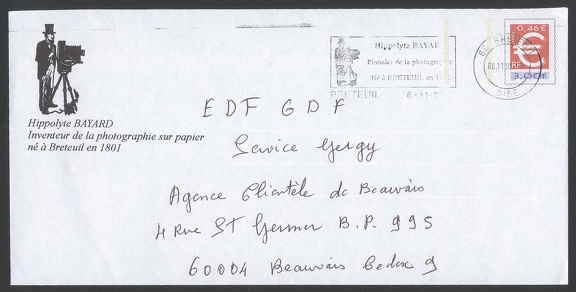 Hippolyte BAYARD
Inventeur de la photographie sur papier
né à Breteuil en 1801
Hippolyte BAYAR
Pionnier de la photographie
Né à BRETEUIL en 1
BRETEUIL 8-11-0
60 BRET
OISE
0,46 €
RF
3,00F
EDF GDF
Service
Agence Clientèle de Beauvais
4 Rue ST Germer B.P. 995
60004 Beauvais Cedex 9